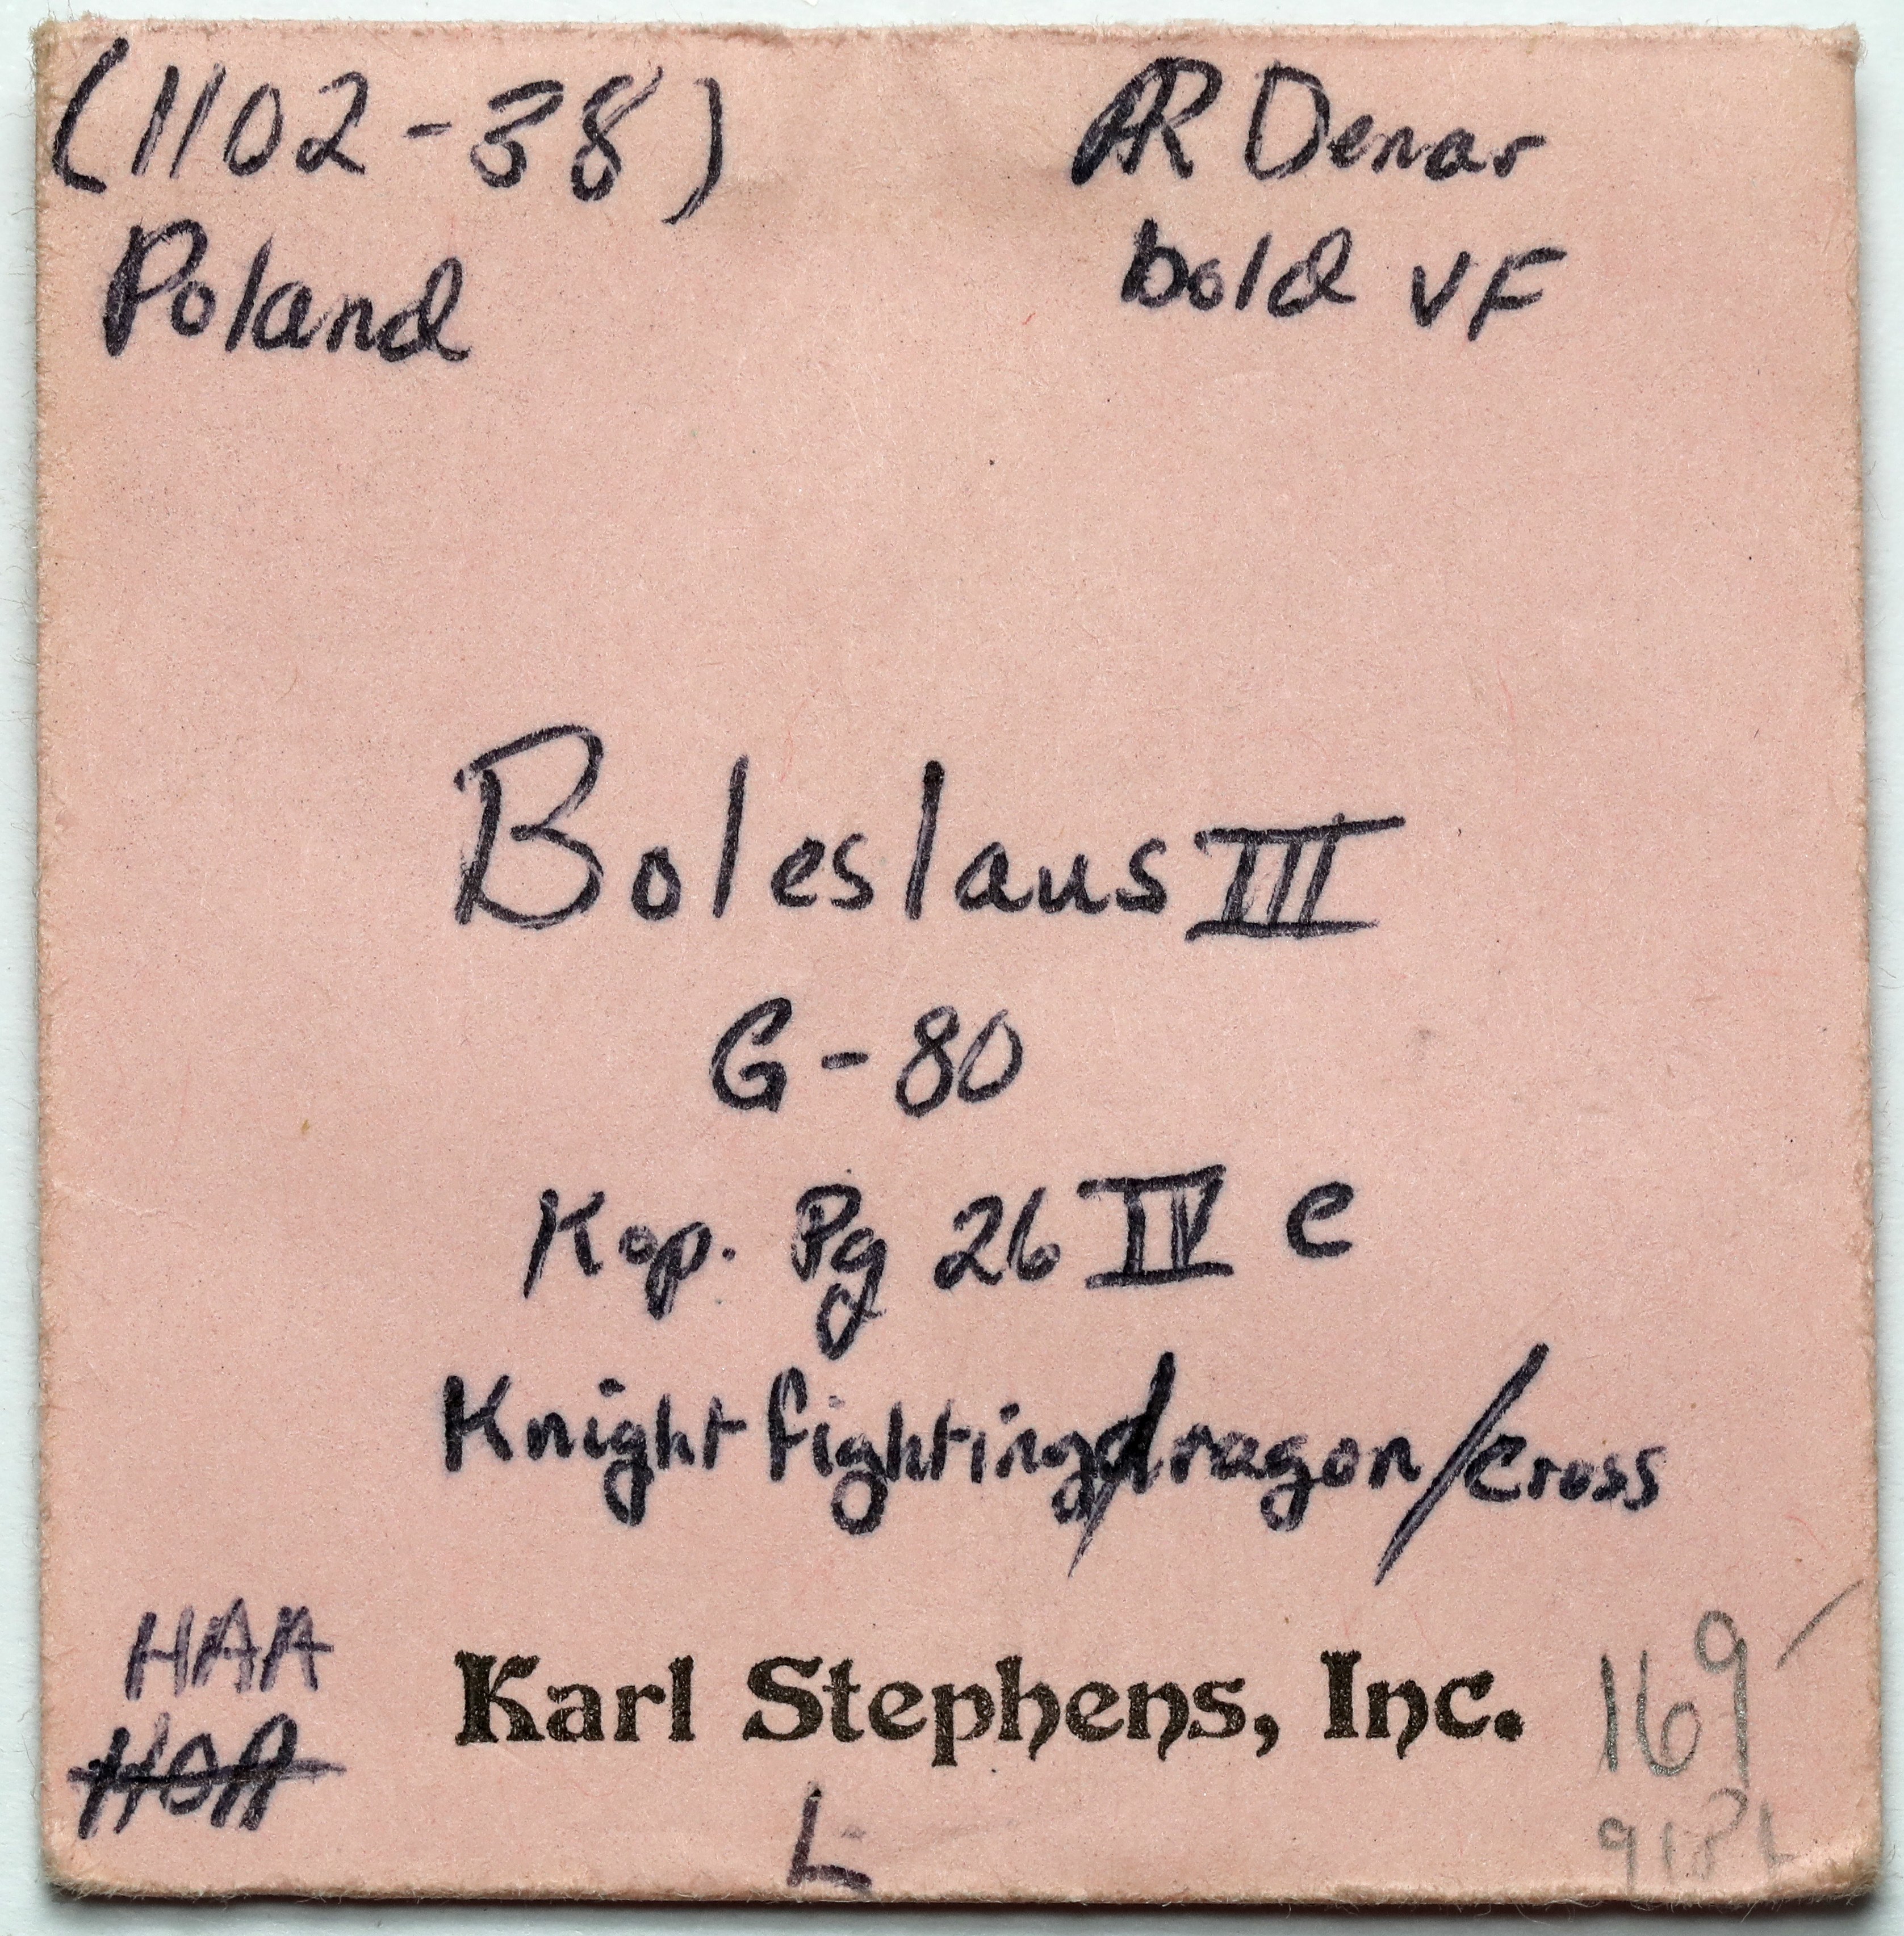 (1102-38)
AR Denar
Poland
bold VF
Boleslaus III
G-80
Kop. Pg 26 IV e
Knight fighting dragon/cross
HAA
HOA
Karl Stephens, Inc.
169-
L